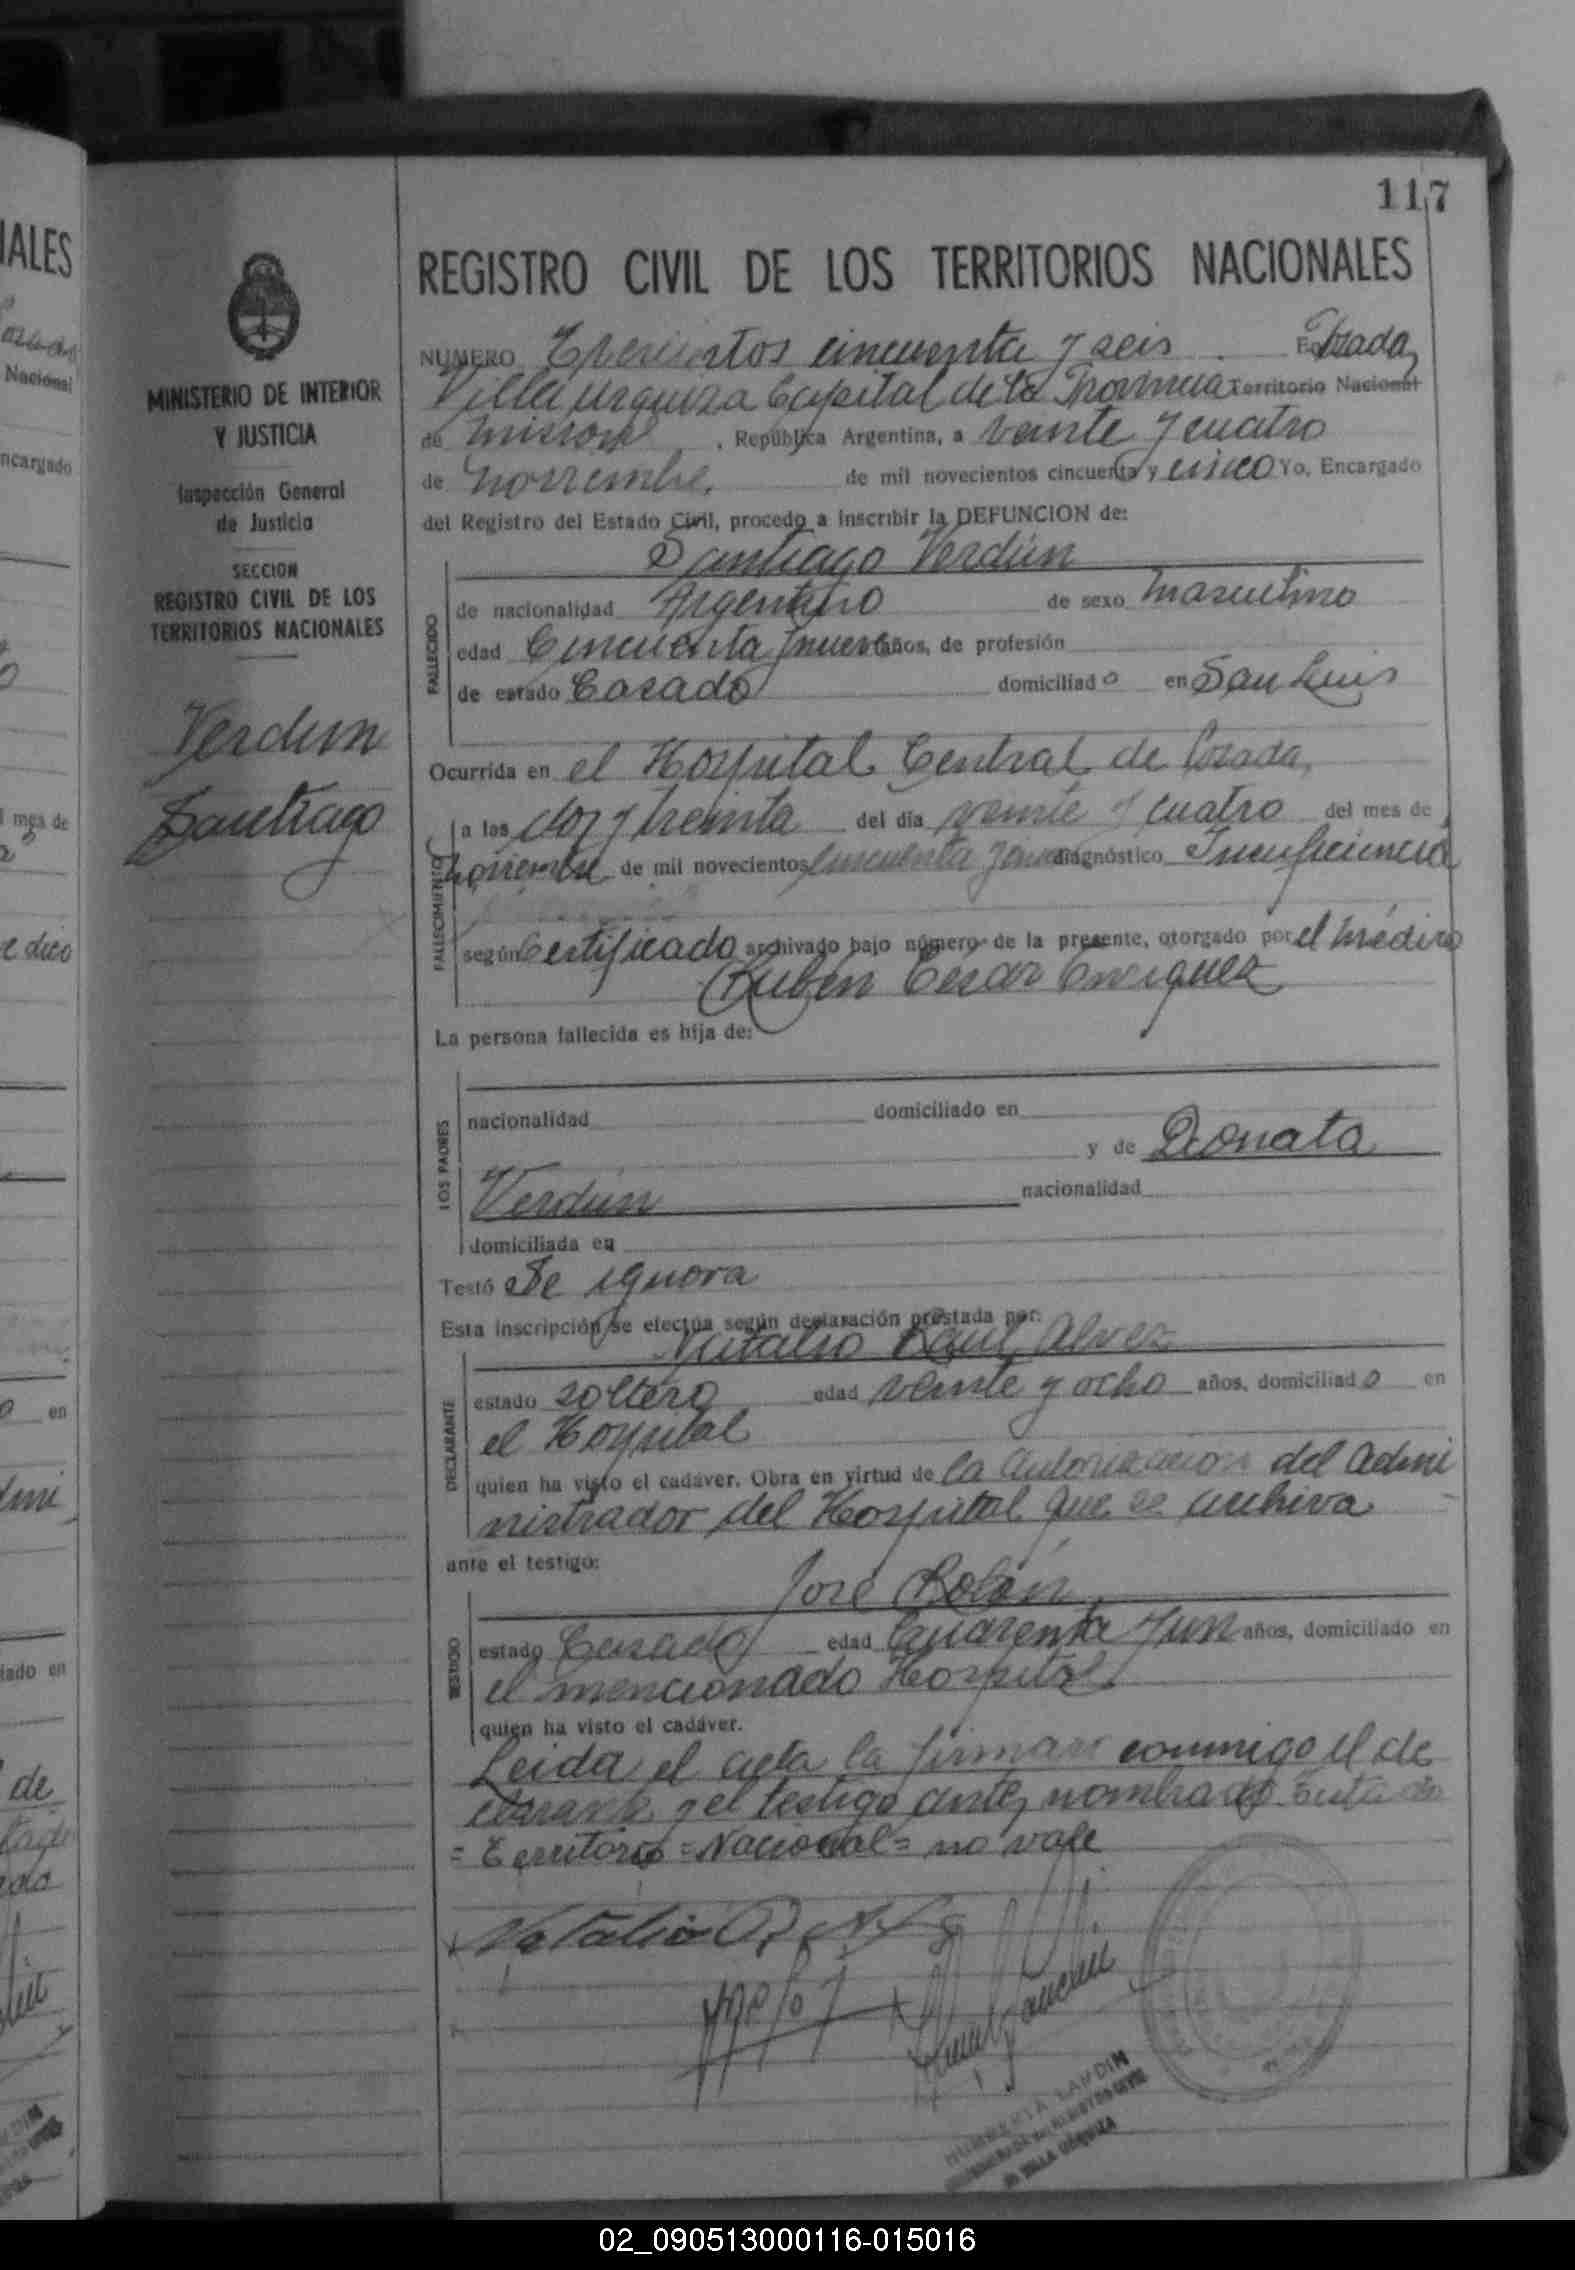 117
IALES
Nacional
ncargado
mes de
e dico
en
iado en
de
MINISTERIO DE INTERIOR
Y JUSTICIA
Inspección General
de Justicia
SECCION
REGISTRO CIVIL DE LOS
TERRITORIOS NACIONALES
Verdun
Santiago
REGISTRO CIVIL DE LOS TERRITORIOS NACIONALES
NUMERO cincuenta y seis En Posadas
Villa Urquiza Capital de la Provincia Territorio Nacional
de Misiones, República Argentina, a veinte y cuatro
de noviembre de mil novecientos cincuenta y cinco Yo, Encargado
del Registro del Estado Civil, procedo a inscribir la DEFUNCION de:
Santiago Verdún
FALLECIDO
de nacionalidad Argentino de sexo masculino
edad Cincuenta y nueve años, de profesión
de estado Casado domiciliado en San Luis
Ocurrida en el Hospital Central de Posadas,
FALLECIMIENTO
a las dos y treinta del día veinte y cuatro del mes de
noviembre de mil novecientos cincuenta y cinco diagnóstico Insuficiencia
según Certificado archivado bajo número de la presente, otorgado por el médico
Ruben Cesar Enriquez
La persona fallecida es hija de:
LOS PADRES
nacionalidad domiciliado en
y de Donata
Verdún nacionalidad
domiciliada en
Testó Se ignora
Esta inscripción se efectúa según declaración prestada por:
Natalio Raul Alvez
DECLARANTE
estado soltero edad veinte y ocho años, domiciliado en
el Hospital
quien ha visto el cadáver. Obra en virtud de la autorización del Admi
nistrador del Hospital que se archiva
ante el testigo:
José Rolón
TESTIGO
estado Casado edad Cuarenta y un años, domiciliado en
el mencionado Hospital
quien ha visto el cadáver.
Leida el acta la firman conmigo el de
clarante y el testigo antes nombrados
= Territorio = Nacional = no vale
Natalio R. Alvez
HUMBERTA LANDIN
ENCARGADA DEL REGISTRO CIVIL
DE VILLA URQUIZA
02_090513000116-015016